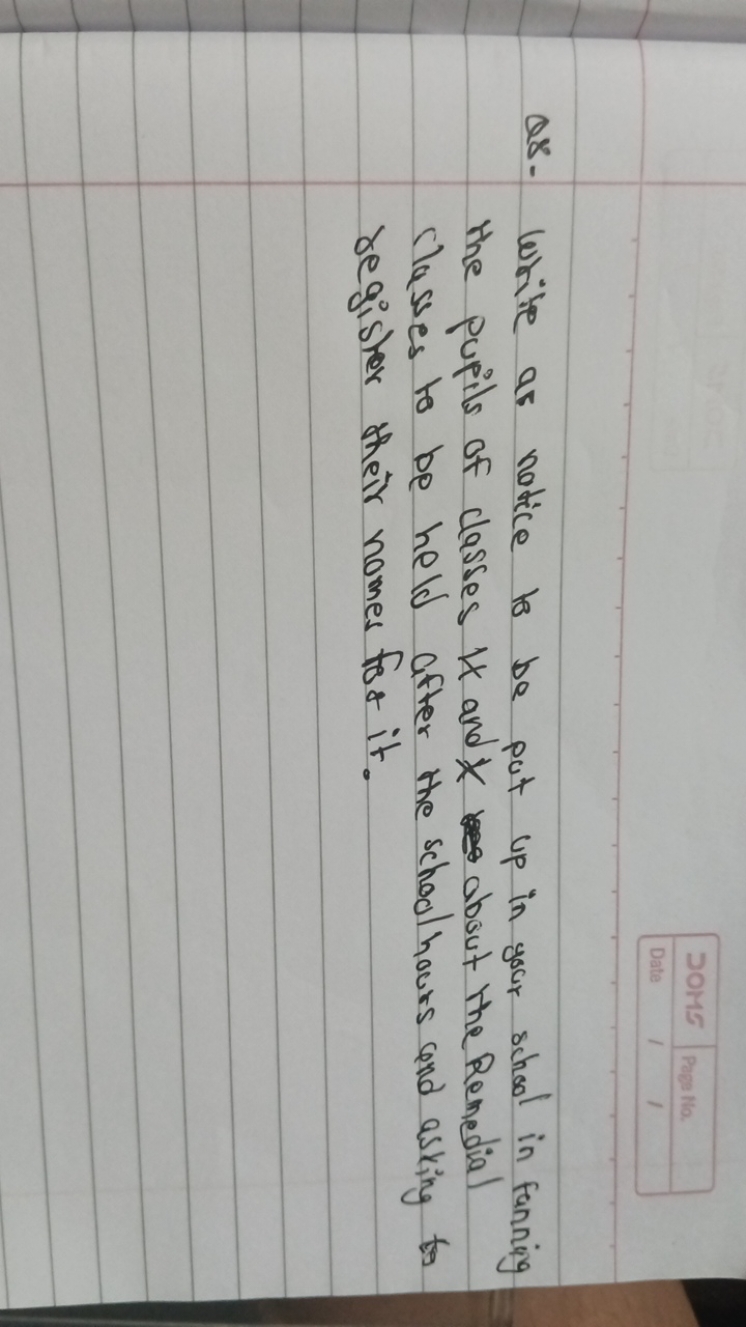 DOMS Page No.
Date / /
Q8- Write as notice to be put up in your school in fanning
the pupils of classes IX and X about the Remedial
classes to be held after the school hours and asking to
register their names for it.